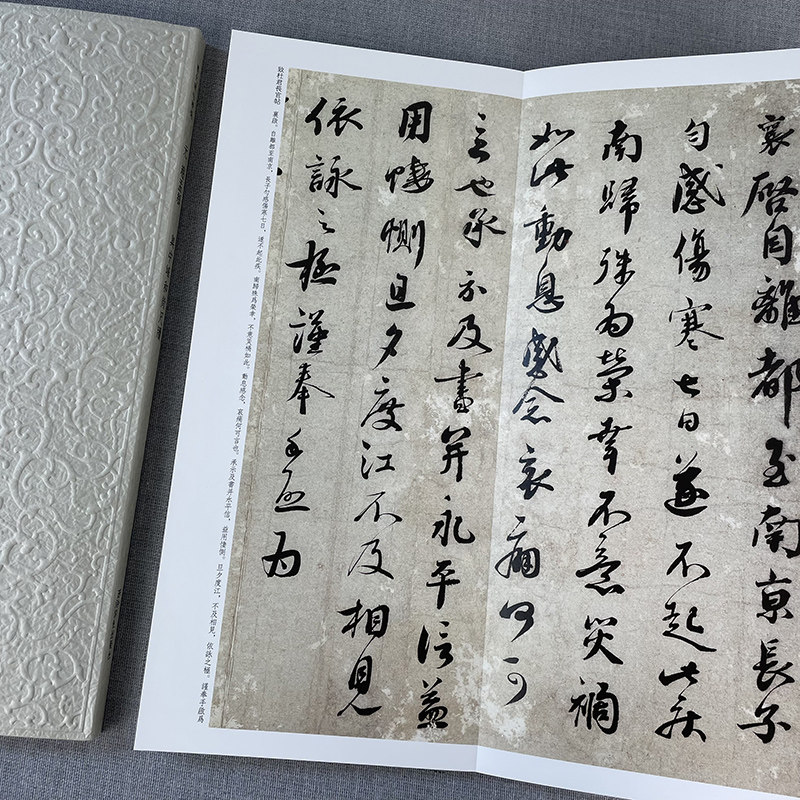 襄啓自離都至南京長子
勻感傷寒七日遂不起此疾
南歸殊為榮幸不意災禍
如此動息感念哀痛何可
言也承示及書并永平信益
用悽惻旦夕度江不及相見
依詠之極謹奉手啓為
致杜君長官帖　襄啟。自離都至南京，長子勻感傷寒七日，遂不起此疾。南歸殊爲榮幸，不意災禍如此。動息感念，哀痛何可言也。承示及書并永平信，益用悽惻。旦夕度江，不及相見，依詠之極。謹奉手啟爲